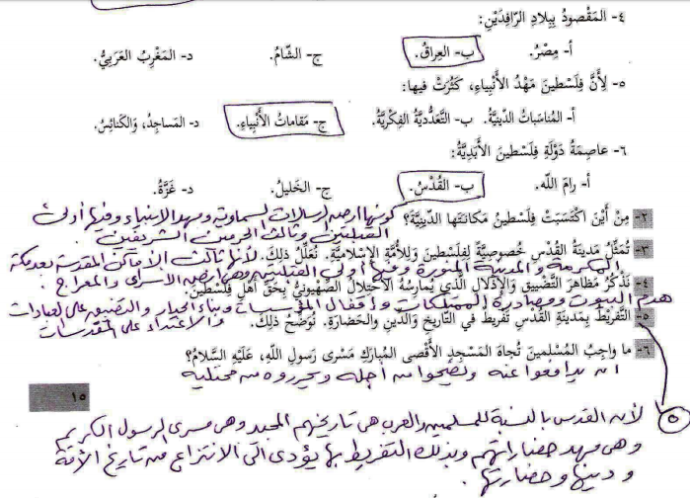 ٤- المَقْصودُ بِبِلادِ الرّافِدَيْنِ:
أ- مِصْرُ. ب- العِراقُ. ج- الشّامُ. د- المَغْرِبُ العَرَبِيُّ.
٥- لِأَنَّ فِلَسْطينَ مَهْدُ الأَنْبِياءِ، كَثُرَتْ فيها:
أ- المُناسَباتُ الدّينِيَّةُ. ب- التَّعَدُّدِيَّةُ الفِكْرِيَّةُ. ج- مَقاماتُ الأَنْبِياءِ. د- المَساجِدُ، وَالكَنائِسُ.
٦- عاصِمَةُ دَوْلَةِ فِلَسْطينَ الأَبَدِيَّةُ:
أ- رامَ الله. ب- القُدْسُ. ج- الخَليلُ. د- غَزَّةُ.
كونها ارض لرسالات السماوية ومهد الانبياء وفيها أولى
٢- مِنْ أَيْنَ اكْتَسَبَتْ فِلَسْطينُ مَكانَتَها الدّينِيَّةَ؟ القبلتين وثالث الحرمين الشريفين
٣- تُمَثِّلُ مَدينَةُ القُدْسِ خُصوصِيَّةً لِفِلَسْطينَ وَلِلْأُمَّةِ الإِسْلامِيَّةِ. نُعَلِّلُ ذلِكَ. لأنها ثالث الاماكن المقدسة بعد مكة
المكرمة والمدينة المنورة وفيها أولى القبلتين وهي ارض الاسراء والمعراج
٤- نَذْكُرُ مَظاهِرَ التَّضْييقِ وَالإِذْلالِ الَّذي يُمارِسُهُ الاحْتِلالُ الصُّهْيونِيُّ بِحَقِّ أَهْلِ فِلَسْطينَ.
هدم البيوت ومصادرة الممتلكات وإقفال المؤسسات وبناء الجدار والتضييق على العبادات
٥- التَّفْريطُ بِمَدينَةِ القُدْسِ تَفْريطٌ في التّاريخِ وَالدّينِ وَالحَضارَةِ. نُوَضِّحُ ذلِكَ. والاعتداء على المقدسات
٦- ما واجِبُ المُسْلِمينَ تُجاهَ المَسْجِدِ الأَقْصى المُبارَكِ مَسْرى رَسولِ اللهِ، عَلَيْهِ السَّلامُ؟
ان يدافعوا عنه ويضحوا من اجله ويحرروه من محتليه
١٥
٥ لأن القدس بالنسبة للمسلمين والعرب هي تاريخهم المجيد وهي مسرى الرسول الكريم
وهي مهد حضاراتهم وبذلك التفريط بها يؤدي الى الانتزاع من تاريخ الأمة
ودينها وحضارتها.